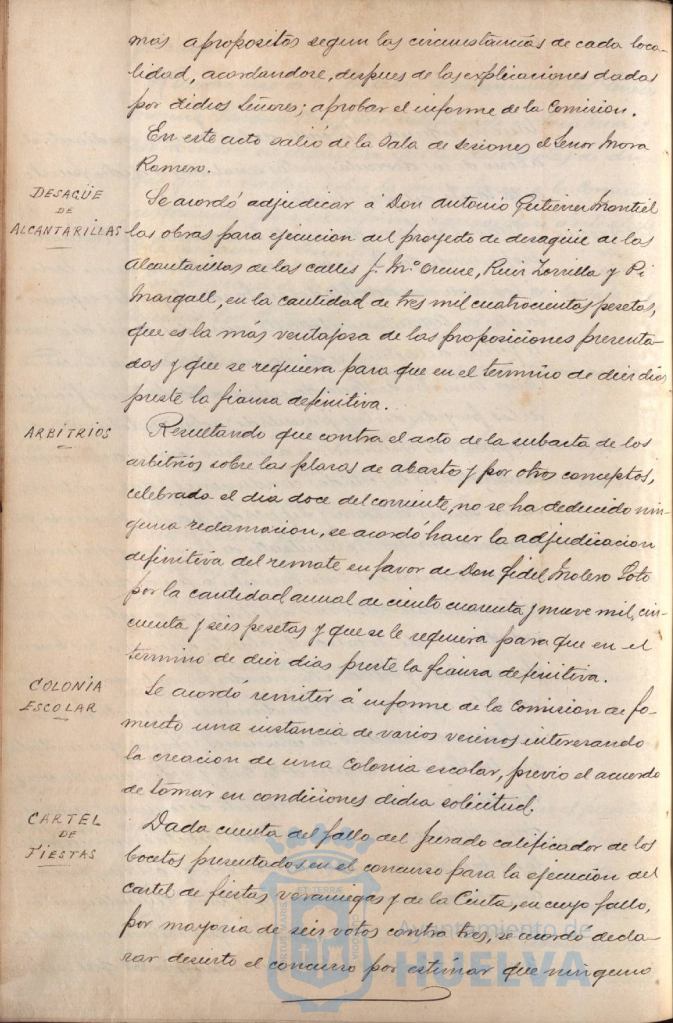 más apropositos segun las circunstancias de cada loca-
lidad, acordandose, despues de las explicaciones dadas
por dichos Señores; aprobar el informe de la Comision.
En este acto salió de la Sala de Sesiones el Señor Mora
Romero.
DESAGÜE
DE
ALCANTARILLAS
Se acordó adjudicar á Don Antonio Gutierrez Montiel
las obras para ejecucion del proyecto de desagüe de las
Alcantarillas de las calles J. Mª Orense, Ruiz Zorrilla y Pi
Margall, en la cantidad de tres mil cuatrocientas pesetas,
que es la más ventajosa de las proposiciones presenta-
das y que se requiera para que en el termino de diez dias
preste la fianza definitiva.
ARBITRIOS
Resultando que contra el acto de la subasta de los
arbitrios sobre las plazas de abasto y por otros conceptos,
celebrada el dia doce del corriente, no se ha deducido nin-
guna reclamacion, se acordó hacer la adjudicacion
definitiva del remate en favor de Don Fidel Molero Soto
por la cantidad anual de ciento cuarenta y nueve mil, cin-
cuenta y seis pesetas y que se le requiera para que en el
termino de diez dias preste la fianza definitiva.
COLONIA
ESCOLAR
Se acordó remitir á informe de la Comision de Fo-
mento una instancia de varios vecinos interesando
la creacion de una Colonia escolar, previo el acuerdo
de tomar en condiciones dicha solicitud.
CARTEL
DE
FIESTAS
Dada cuenta del fallo del jurado calificador de los
bocetos presentados en el concurso para la ejecucion del
cartel de fiestas veraniegas y de la Cinta, en cuyo fallo,
por mayoria de seis votos contra tres, se acordo decla-
rar desierto el concurso por estimar que ninguno
Ayuntamiento de
HUELVA